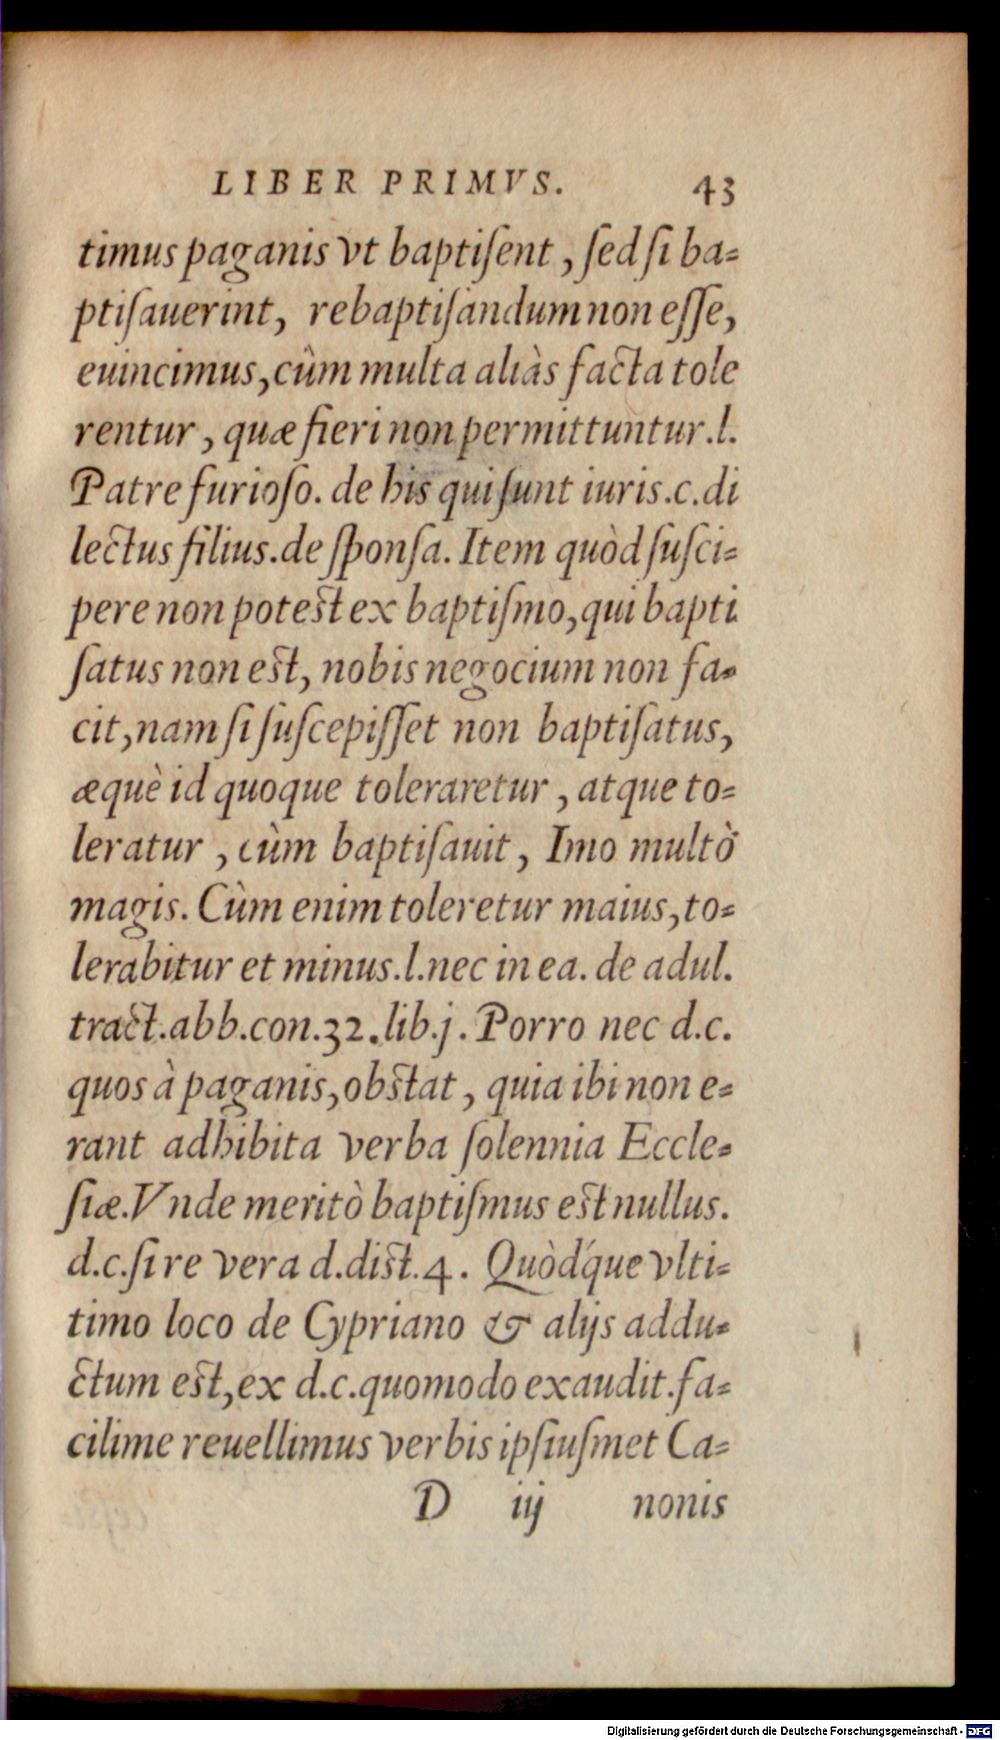 LIBER PRIMVS. 43
timus paganis vt baptiſent, ſed ſi ba-
ptiſauerint, rebaptiſandum non eſſe,
euincimus, cùm multa aliàs facta tole
rentur, quæ fieri non permittuntur. l.
Patre furioſo. de his qui ſunt iuris. c. di
lectus filius. de ſponſa. Item quòd ſuſci-
pere non poteſt ex baptiſmo, qui bapti
ſatus non eſt, nobis negocium non fa-
cit, nam ſi ſuſcepiſſet non baptiſatus,
æquè id quoque toleraretur, atque to-
leratur, cùm baptiſauit, Imo multò
magis. Cùm enim toleretur maius, to-
lerabitur et minus. l. nec in ea. de adul.
tract. abb. con. 32. lib. j. Porro nec d. c.
quos à paganis, obſtat, quia ibi non e-
rant adhibita verba ſolennia Eccle-
ſiæ. Vnde meritò baptiſmus eſt nullus.
d. c. ſi re vera d. diſt. 4. Quòdq́ue vlti-
timo loco de Cypriano & alijs addu-
ctum eſt, ex d. c. quomodo exaudit. fa-
cilime reuellimus verbis ipſiuſmet Ca-
D iij nonis
Digitalisierung gefördert durch die Deutsche Forschungsgemeinschaft - DFG